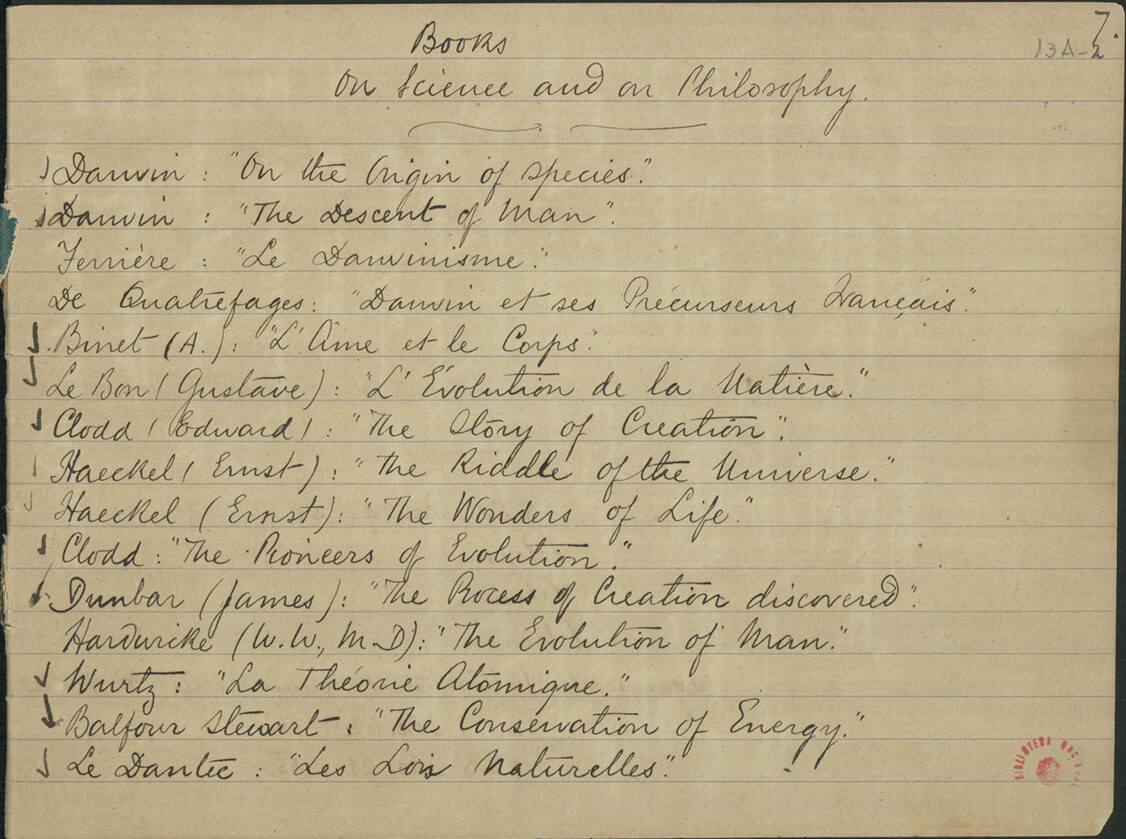 7.
13A-2
Books
On Science and on Philosophy.
Darwin : "On the Origin of species."
Darwin : "The Descent of Man".
Ferrière : "Le Darwinisme."
De Quatrefages: "Darwin et ses Précurseurs Français".
Binet (A.): "L'Âme et le Corps".
Le Bon (Gustave): "L'Évolution de la Matière."
Clodd (Edward): "The Story of Creation".
Haeckel (Ernst): "The Riddle of the Universe."
Haeckel (Ernst): "The Wonders of Life."
Clodd: "The Pioneers of Evolution."
Dunbar (James): "The Process of Creation discovered".
Hardwicke (W.W., M-D): "The Evolution of Man."
Wurtz: "La Théorie Atomique."
Balfour Stewart: "The Conservation of Energy."
Le Dantec: "Les Lois Naturelles".
BIBLIOTECA NAC